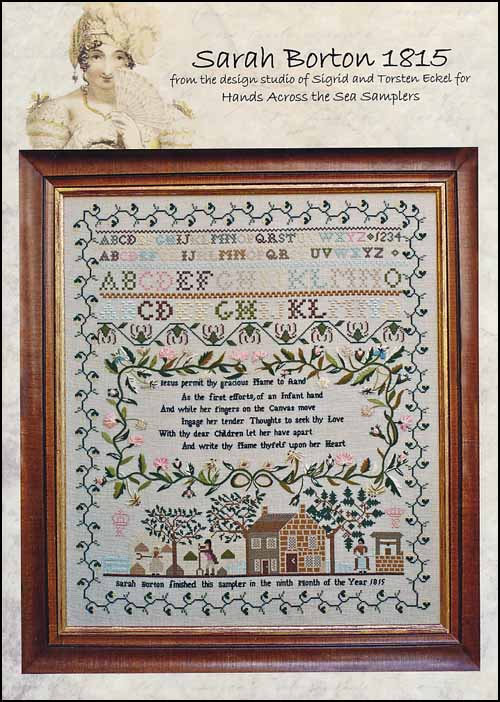 Sarah Borton 1815
from the design studio of Sigrid and Torsten Eckel for
Hands Across the Sea Samplers
ABCDEFGHIJKLMNOPQRSTUVWXYZ 1234
ABCDEFGHIJKLMNOPQR UVWXYZ
ABCDEFGHIKLMNO
ABCDEFGHIJKL
Jesus permit thy gracious Name to stand
As the first efforts, of an Infant hand
And while her fingers on the Canvas move
Ingage her tender Thoughts to seek thy Love
With thy dear Children let her have apart
And write thy Name thyself upon her Heart
Sarah Borton finished this sampler in the ninth Month of the Year 1815